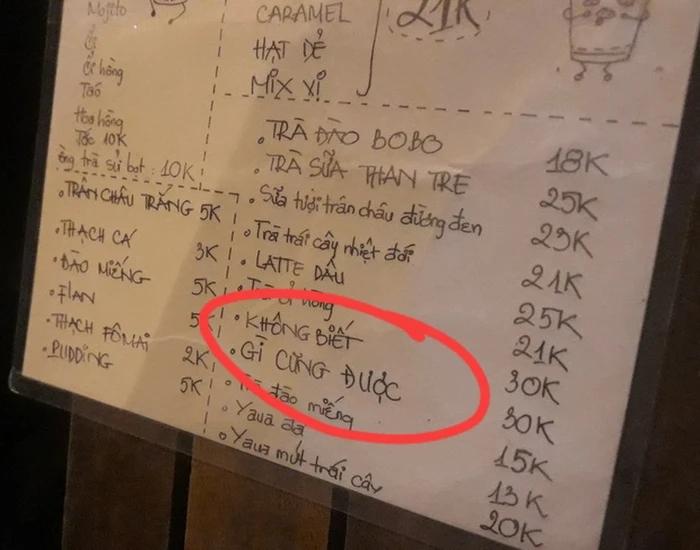 Mojito
Ổi
Ổi hồng
Táo
Hoa hồng
Tắc 10K
ồng trà sủi bọt : 10K
• TRÂN CHÂU TRẮNG 5K
• THẠCH CÁ 3K
• ĐÀO MIẾNG 5K
• FLAN 5K
• THẠCH FÔMAI 2K
• PUDDING 5K
CARAMEL
HẠT DẺ
MIX VỊ
21K
• TRÀ ĐÀO BOBO 18K
• TRÀ SỮA THAN TRE 25K
• Sữa tươi trân châu đường đen 23K
• Trà trái cây nhiệt đới 21K
• LATTE DÂU 25K
• Trà ổi hồng 21K
• KHÔNG BIẾT 30K
• GÌ CŨNG ĐƯỢC 30K
• Trà đào miếng 15K
• Yaua đá 13K
• Yaua mứt trái cây 20K